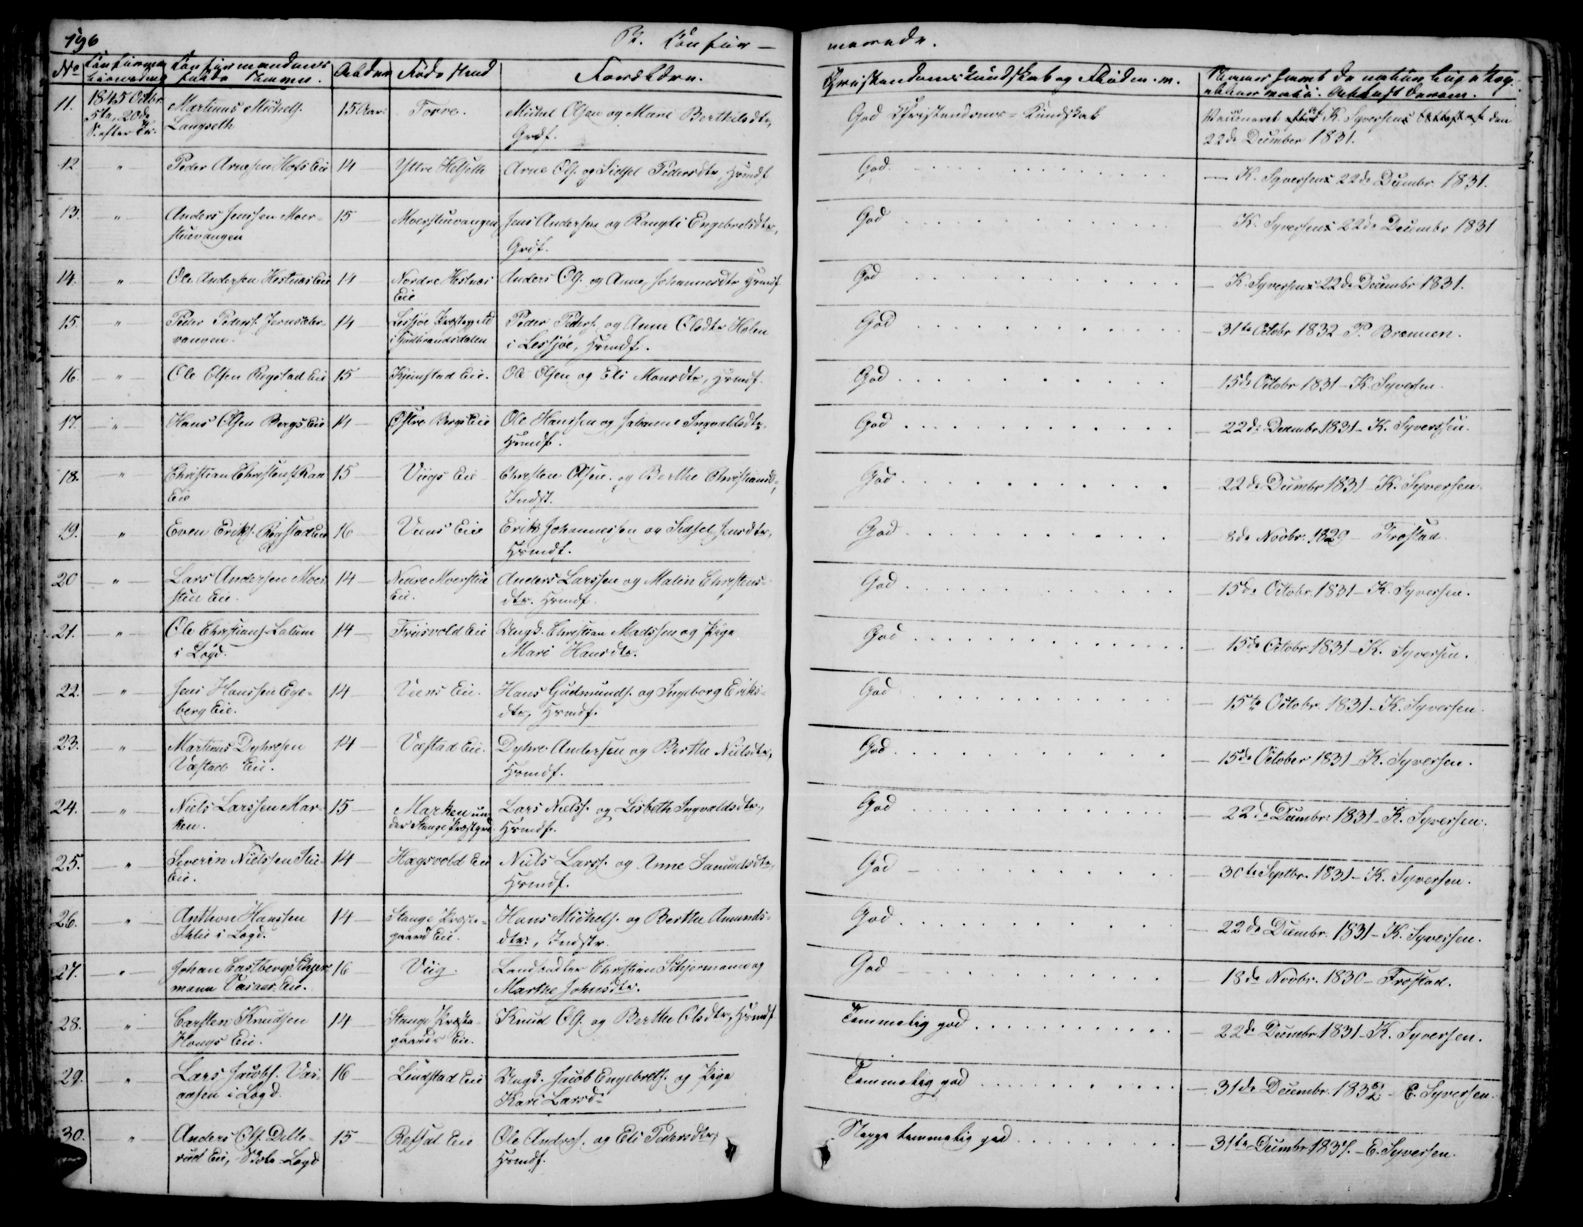 196
Confir-
merede.
No
Alder
Føde Sted
Forældre.
Christendoms Kundskab og Fliden. m.
11. 1845 Octbr 5te, 20de S. efter Tr. Martinus Michels. Langseth 15 Aar. Torve. Michel Olsen og Mari Berthelsdtr, Grdf. God Christendoms-Kundskab Vaccineret af K. Syversen den 22de December 1831.
12 " Peder Arnesen Hofs Eie 14 Yttre Helseth Arne Ols. og Sidsel Pedersdtr, Hsmdf. God. — K. Syversen 22de Decembr 1831.
13. " Anders Jenssen Moer-stuevangen 15 Moerstuevangen Jens Andersen og Rangdi Engebretsdtr, Grdf. God — K. Syversen 22de Decembr 1831
14. " Ole Andersen Hestnæs Eie 14 Nordre Hestnæs Eie Anders Ols. og Anne Johannesdtr Hsmdf God — K. Syversen 22de Decembr 1831.
15. " Peder Peders. 14 i Gudbrandsdalen Peder Peders. og Anne Olsdtr Holen i Lessøe, Hsmdf. God — 31te Octobr 1832 P. Brennen.
16. " Ole Olsen Rogstad Eie 15 Kjemstad Eie. Ole Olsen og Eli Monsdtr, Hsmdf. God — 15de Octobr 1831 — K. Syversen.
17. " Hans Olsen Bergs Eie 14 Østre Bergs Eie Ole Hanssen og Johanne Ingvaldsdtr Hsmdf. God — 22de Decembr 1831 — K. Syversen.
18. " Christian Christens. Eie 15 Viigs Eie Christen Olsen og Berthe Christiansd., Indst. God — 22de Decembr 1831 — K. Syversen
19. " Even Eriks. Rogstad Eie 16 Veens Eie Erik Johannessen og Sidsel Jensdtr, Hsmdf. God — 8de Novbr. 1829 — Frostad
20 " Lars Andersen Moer-stu Eie. 14 Nedre Moerstu Eie. Anders Larssen og Malin Christens-dtr. Hsmdf. God — 15de Octobr. 1831 — K. Syversen.
21. " Ole Christians. Løgd. 14 Frisvold Eie Ungk. Christian Madssen og Pige Mari Hansdtr. God — 15de Octobr 1831 — K. Syversen.
22. " Jens Hanssen Ege-berg Eie. 14 Veens Eie. Hans Gudmunds. og Ingeborg Eriks-dtr, Hsmdf. God — 15de Octobr. 1831 — K. Syversen.
23. " Martinus Dyhresen Væstad Eie. 14 Væstad Eie. Dyhre Andersen og Berthe Nielsdtr, Hsmdf. God — 15de October 1831 — K. Syversen.
24. " Niels Larssen Mar-ken. 15 Marken un-der Stange Præstgrd Lars Niels. og Lisbeth Ingvaldsdtr, Hsmdf. God — 22de Decembr. 1831 — K. Syversen.
25. " Severin Nielssen Eie. 14 Hagsvold Eie Niels Larss. og Anne Samuelsdtr, Hsmdf. God — 30te Septbr. 1831 — K. Syversen.
26. " Anthon Hanssen i Løgd. 14 Stange Præste-gaard Eie. Hans Michels. og Berthe Amunds-dtr, Indstr. God — 22de Decembr. 1831 — K. Syversen.
27. " Johan Castberg Schjer-mann Eie. 16 Viig. Landhadler Christian Schjermann og Marthe Johnsdtr. God — 18de Novbr. 1830 — Frostad.
28. " Carsten Knudsen Hougs Eie. 14 Stange Præste-gaards Eie. Knud Ols. og Berthe Olsdtr, Hsmdf. Temmelig god — 22de Decembr. 1831 — K. Syversen.
29. " Lars Jacobs. Vaa-aasen i Løgd. 16 Lindstad Eie Ungk. Jacob Engebrets. og Pige Kari Larsd. Temmelig god — 31de Decembr. 1832 — E. Syversen.
30. " Anders Ols. Ditte-rud Eie, Løgd 15 Refsal Eie Ole Anders. og Eli Pedersdtr, Hsmdf. Neppe temmelig god — 31te Decembr 1837. — E. Syversen.